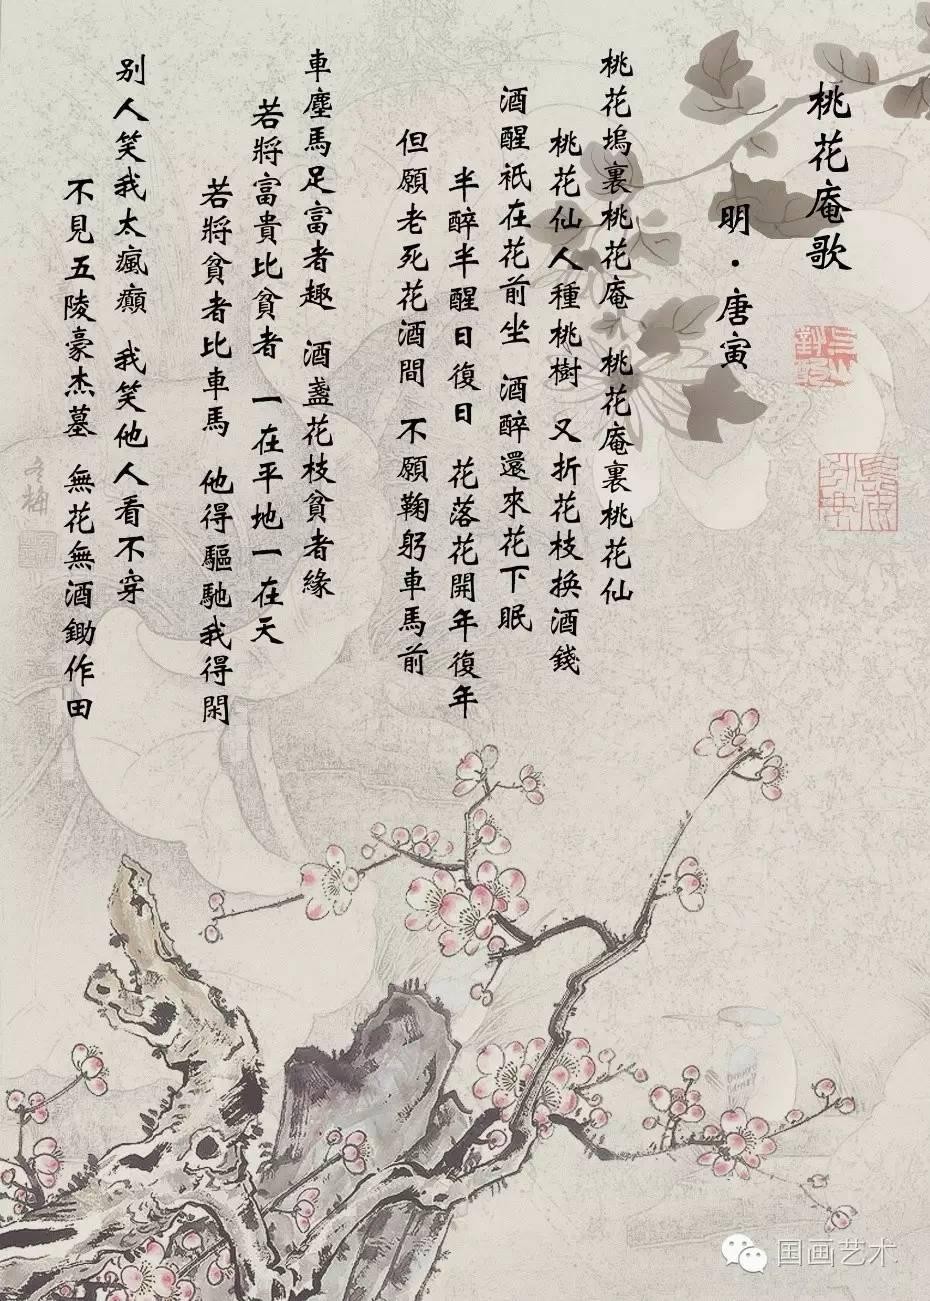 桃花庵歌
明·唐寅
桃花塢裏桃花庵 桃花庵裏桃花仙
桃花仙人種桃樹 又折花枝換酒錢
酒醒祇在花前坐 酒醉還來花下眠
半醉半醒日復日 花落花開年復年
但願老死花酒間 不願鞠躬車馬前
車塵馬足富者趣 酒盞花枝貧者緣
若將富貴比貧者 一在平地一在天
若將貧者比車馬 他得驅馳我得閑
别人笑我太瘋癲 我笑他人看不穿
不見五陵豪杰墓 無花無酒鋤作田
国画艺术